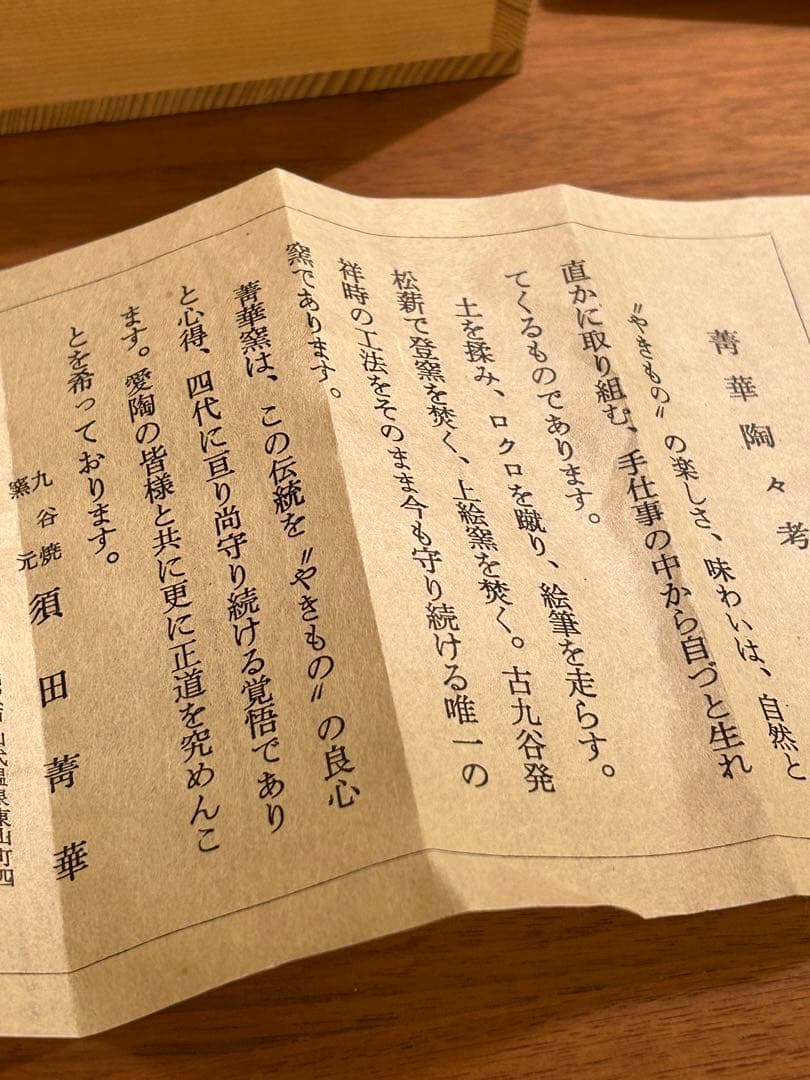 菁華陶々考
〝やきもの〟の楽しさ、味わいは、自然と
直かに取り組む、手仕事の中から自づと生れ
てくるものであります。
土を揉み、ロクロを蹴り、絵筆を走らす。
松薪で登窯を焚く、上絵窯を焚く。古九谷発
祥時の工法をそのまま今も守り続ける唯一の
窯であります。
菁華窯は、この伝統を〝やきもの〟の良心
と心得、四代に亘り尚守り続ける覚悟であり
ます。愛陶の皆様と共に更に正道を究めんこ
とを希っております。
九谷焼
窯元
須田菁華
山代温泉東山町四